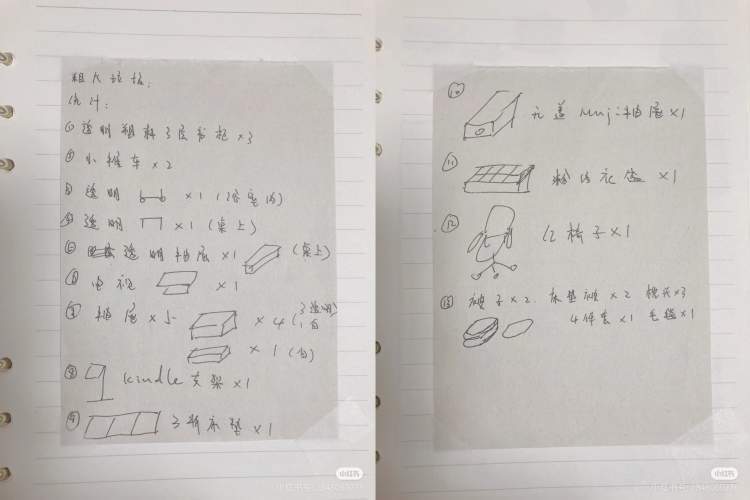 粗大垃圾:
估计:
① 透明塑料3层书柜×3
② 小推车×2
③ 透明 ×1
④ 透明 ×1 (桌上)
⑤ 透明抽屉×1 (桌上)
⑥ 电视 ×1
⑦ 抽屉×5 ×4 (3透明 1白
×1 (白)
⑧ kindle支架×1
⑨ 3折床垫×1
⑩ 无盖muji抽屉×1
⑪ 粉的衣盒×1
⑫ 红椅子×1
⑬ 被子×2 床垫被×2 枕头×3
4件套×1 毛毯×1
小红书
小红书